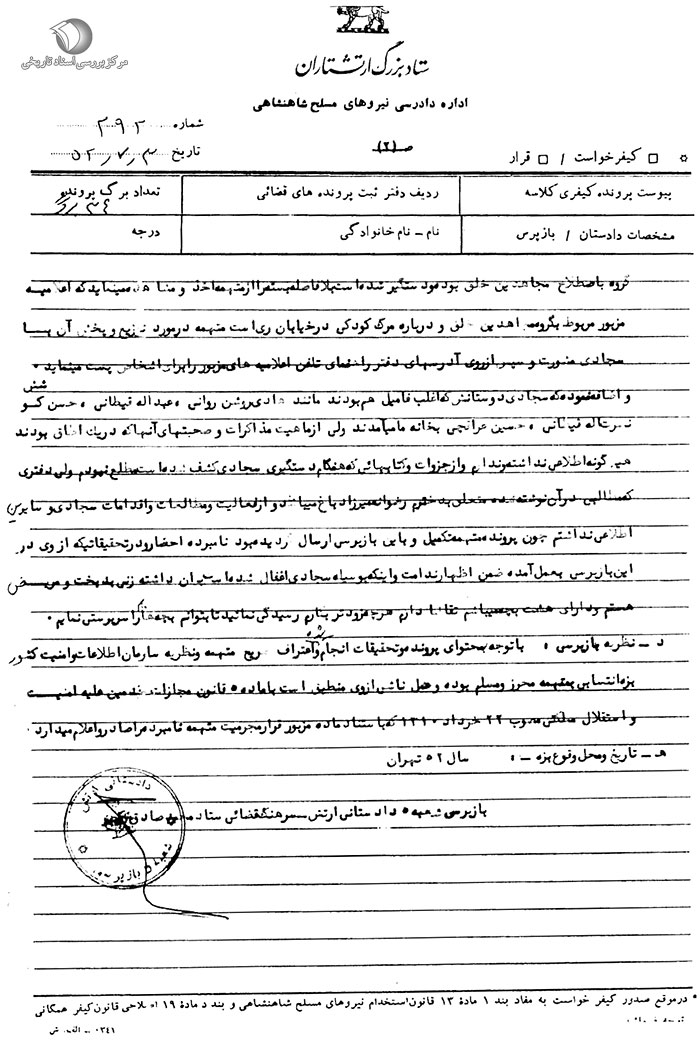 مرکز بررسی اسناد تاریخی
ستاد بزرگ ارتشتاران
اداره دادرسی نیروهای مسلح شاهنشاهی
شماره ۲۹۲
ص(۲)
تاریخ ۵۲/۷/۳
کیفرخواست / قرار
پیوست پرونده کیفری کلاسه
ردیف دفتر ثبت پرونده های قضائی
تعداد برگ پرونده ۳۶ برگ
مشخصات دادستان / بازپرس
نام – نام خانوادگی
درجه
گروه باصطلاح مجاهدین خلق بوده دستگیر شده است بلافاصله از متهمه اخذ و مینماید که اعلامیه
مزبور مربوط بگروه مجاهدین خلق و درباره مرگ کودکی در خیابان ری است متهمه در مورد توزیع و پخش آن با
سجادی مشورت و سپس از روی آدرسهای دفتر راهنمای تلفن اعلامیه های مزبور را برای اشخاص پست مینماید
و اضافه نموده که سجادی دوستانش که اغلب فامیل هم بودند مانند هادی روشن روانی عبداله قیطانی حسن کو شش
نصرتاله قیطانی حسین عراقچی بخانه ما میآمدند ولی از ماهیت مذاکرات و صحبتهای آنها که در یک اطاق بودند
هیچ گونه اطلاعی نداشته و ندارم و از جزوات و کتابهائی که هنگام دستگیری سجادی کشف شده است مطلع نبودم ولی دفتری
که مطالبی در آن نوشته شده متعلق بدخترم رضوانه میرزا دباغ میباشد و از فعالیت و مطالعات و اقدامات سجادی و سایرین
اطلاعی نداشتم چون پرونده متهمه تکمیل و باین بازپرسی ارسال گردیده بود نامبرده احضار و در تحقیقاتیکه از وی در
این بازپرسی بعمل آمده ضمن اظهار ندامت و اینکه بوسیله سجادی اغفال شده است بیان داشته زنی بدبخت و مریض
هستم و دارای هشت بچه میباشم تقاضا دارم هرچه زودتر بکارم رسیدگی نمائید تا بتوانم بچه هایم را سرپرستی نمایم .
د – نظریه بازپرسی : با توجه بمحتوای پرونده و تحقیقات انجام شده و اعتراف صریح متهمه و نظریه سازمان اطلاعات و امنیت کشور
بزه انتسابی بمتهمه محرز و مسلم بوده و عمل ناشی از وی منطبق است با ماده ۵ قانون مجازات مقدمین علیه امنیت
و استقلال مملکتی مصوب ۲۲ خرداد ۱۳۱۰ که باستناد ماده مزبور قرار مجرمیت متهمه نامبرده را صادر و اعلام میدارد .
هـ – تاریخ و محل وقوع بزه – : سال ۵۲ تهران
بازپرسی شعبه ۵ دادستانی ارتش – سرهنگ قضائی ستاد
دادستانی ارتش
شعبه ۵ بازپرسی
* درموقع صدور کیفر خواست به مفاد بند ۱ مادۀ ۱۳ قانون استخدام نیروهای مسلح شاهنشاهی و بند د مادۀ ۱۹ اصلاحی قانون کیفر همگانی
۰۳۴۱